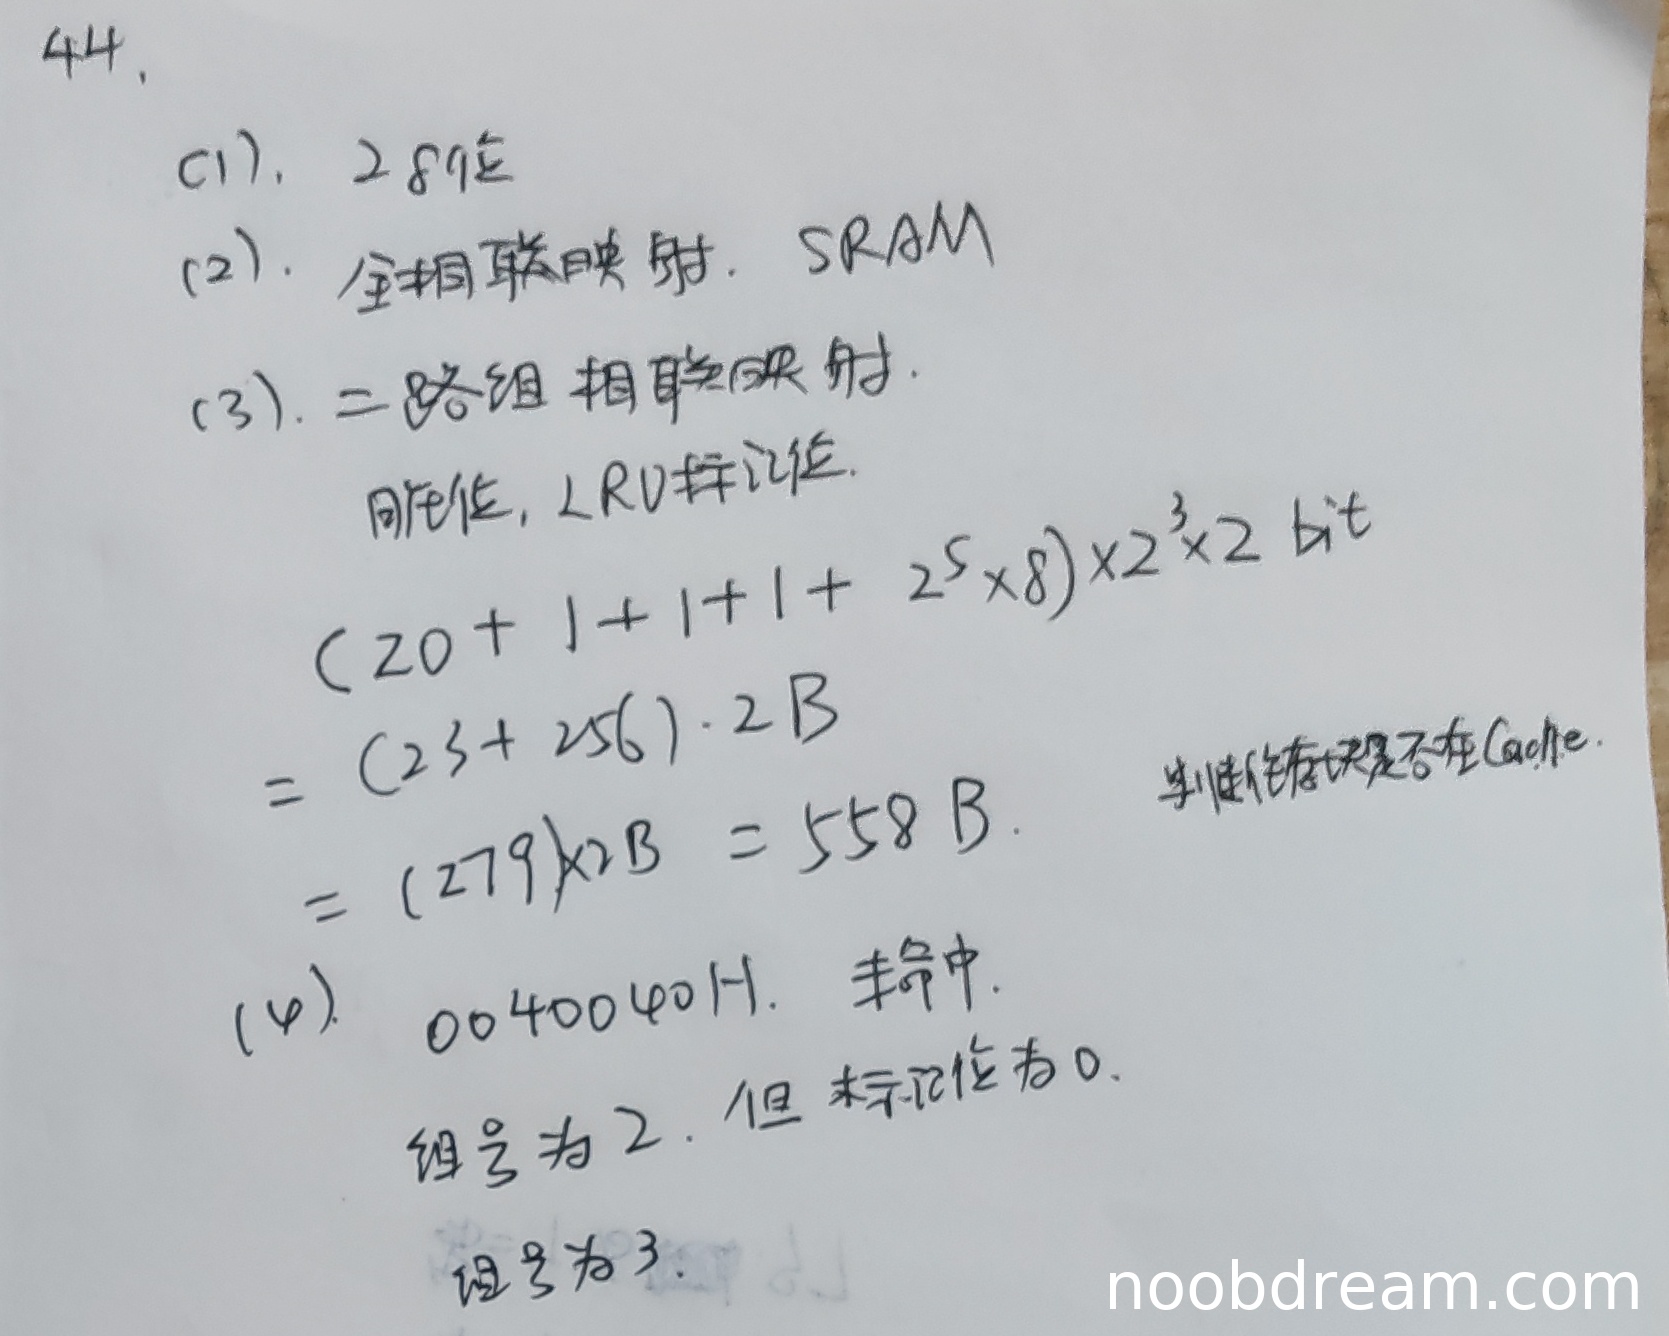 44.
(1). 28位
(2). 全相联映射. SRAM
(3). 二路组相联映射.
脏位, LRU标记位.
(20 + 1 + 1 + 1 + 2^5 × 8) × 2^3 × 2 bit
= (23 + 256) · 2 B
= (279) × 2 B = 558 B.
主存块是否在Cache.
(4). 0040040H. 未命中.
组号为 2. 但标记位为 0.
组号为 3.
noobdream.com